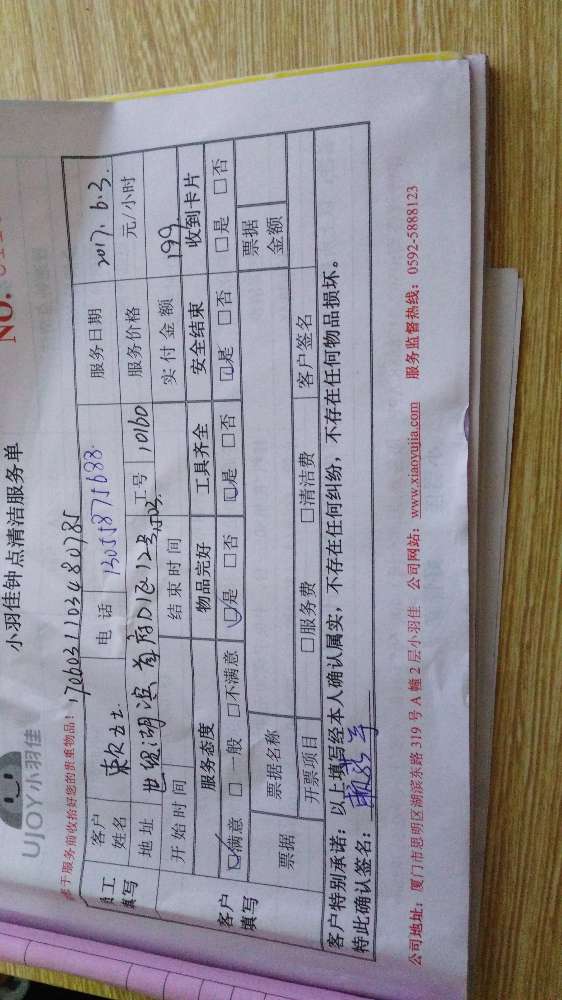 UJOY小羽佳
小羽佳钟点清洁服务单
NO.
于服务前收拾好您的贵重物品！ 1706031103480785
员工填写
客户姓名 电话 13055871688 服务日期 2017.6.3.
地址 世纪湖滨首府D1区123,1203. 工号 10160 服务价格 元/小时
开始时间 结束时间 实付金额 199
客户填写
服务态度 物品完好 工具齐全 安全结束 收到卡片
☑满意 □一般 □不满意 ☑是 □否 ☑是 □否 ☑是 □否 □是 □否
票据 票据名称 票据金额
开票项目 □服务费 □清洁费 客户签名
客户特别承诺：以上填写经本人确认属实，不存在任何纠纷，不存在任何物品损坏。
特此确认签名：
公司地址：厦门市思明区湖滨东路319号A幢2层小羽佳 公司网站：www.xiaoyujia.com 服务监督热线：0592-5888123